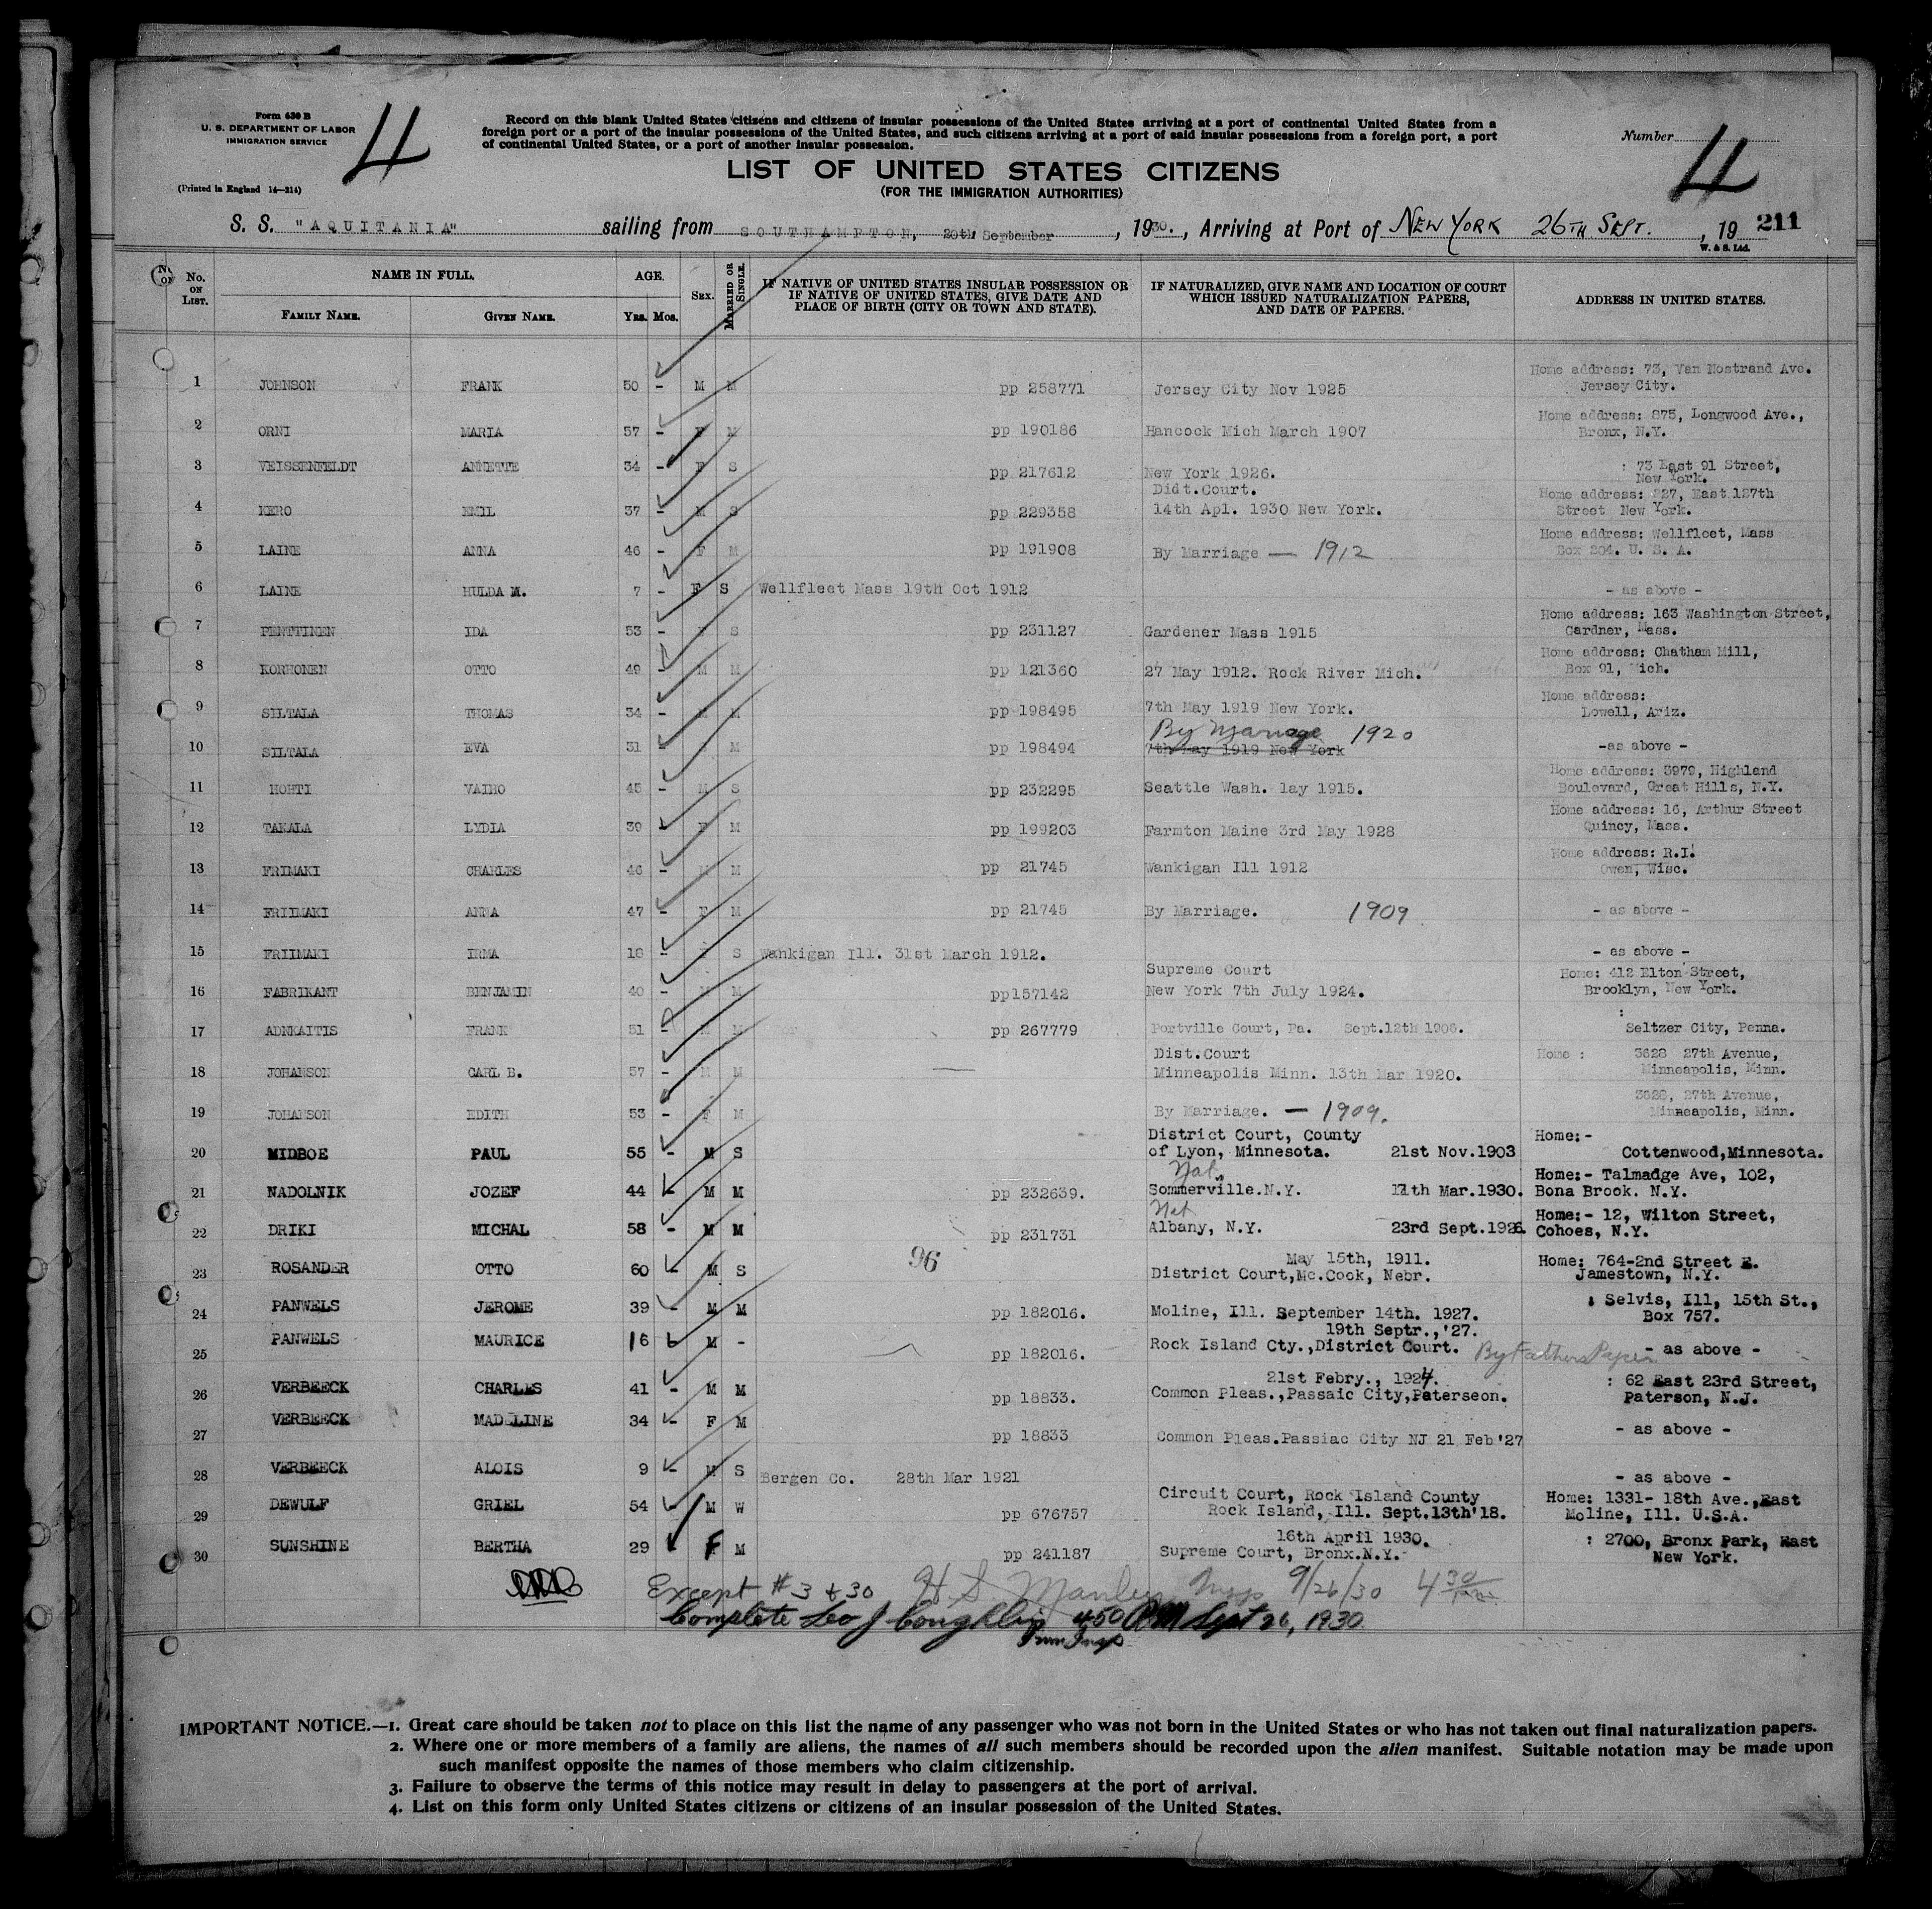 Form 630 B
U. S. DEPARTMENT OF LABOR
IMMIGRATION SERVICE
(Printed in England 14—214)
4
Record on this blank United States citizens and citizens of insular possessions of the United States arriving at a port of continental United States from a
foreign port or a port of the insular possessions of the United States, and such citizens arriving at a port of said insular possessions from a foreign port, a port
of continental United States, or a port of another insular possession.
Number 4
LIST OF UNITED STATES CITIZENS
(FOR THE IMMIGRATION AUTHORITIES)
S. S. "AQUITANIA" sailing from SOUTHAMPTON, 20th September, 1930., Arriving at Port of NEW YORK 26TH SEPT., 19 211
W. & S. Ltd.
No. ON LIST. NAME IN FULL. FAMILY NAME. GIVEN NAME. AGE. YRS. MOS. SEX. MARRIED OR SINGLE. IF NATIVE OF UNITED STATES INSULAR POSSESSION OR IF NATIVE OF UNITED STATES, GIVE DATE AND PLACE OF BIRTH (CITY OR TOWN AND STATE). IF NATURALIZED, GIVE NAME AND LOCATION OF COURT WHICH ISSUED NATURALIZATION PAPERS, AND DATE OF PAPERS. ADDRESS IN UNITED STATES.
1 JOHNSON FRANK 50 - M M pp 258771 Jersey City Nov 1925 Home address: 73, Van Nostrand Ave. Jersey City.
2 ORNI MARIA 57 - F M pp 190186 Hancock Mich March 1907 Home address: 875, Longwood Ave., Bronx, N.Y.
3 VEISSENFELDT ANNETTE 34 - F S pp 217612 New York 1926. : 73 East 91 Street, New York.
4 KERO EMIL 37 - M S pp 229358 Didt.Court. 14th Apl. 1930 New York. Home address: 227, East 127th Street New York.
5 LAINE ANNA 46 - F M pp 191908 By Marriage — 1912 Home address: Wellfleet, Mass Box 204. U. S. A.
6 LAINE HULDA M. 7 - F S Wellfleet Mass 19th Oct 1912 - as above -
7 PENTTINEN IDA 53 - F S pp 231127 Gardener Mass 1915 Home address: 163 Washington Street, Gardner, Mass.
8 KORHONEN OTTO 49 - M M pp 121360 27 May 1912. Rock River Mich. Home address: Chatham Mill, Box 91, Mich.
9 SILTALA THOMAS 34 - M M pp 198495 7th May 1919 New York. Home address: Lowell, Ariz.
10 SILTALA EVA 31 - M pp 198494 By Marriage 1920 7th May 1919 New York -as above -
11 HOHTI VAIHO 45 - M S pp 232295 Seattle Wash. 1ay 1915. Home address: 3979, Highland Boulevard, Great Hills, N.Y.
12 TAKALA LYDIA 39 - F M pp 199203 Farmton Maine 3rd May 1928 Home address: 16, Arthur Street Quincy, Mass.
13 FRIMAKI CHARLES 46 - M M pp 21745 Wankigan Ill 1912 Home address: R.I. Owen, Wisc.
14 FRIIMAKI ANNA 47 - F M pp 21745 By Marriage. 1909 - as above -
15 FRIIMAKI IRMA 18 - F S Wankigan Ill. 31st March 1912. - as above -
16 FABRIKANT BENJAMIN 40 - M M pp157142 Supreme Court New York 7th July 1924. Home: 412 Elton Street, Brooklyn, New York.
17 ADNKAITIS FRANK 51 - M M pp 267779 Portville Court, Pa. Sept.12th 1906. : Seltzer City, Penna.
18 JOHANSON CARL B. 57 - M M — Dist.Court Minneapolis Minn. 13th Mar 1920. Home : 3628 27th Avenue, Minneapolis, Minn.
19 JOHANSON EDITH 53 - F M By Marriage. — 1909. 3628, 27th Avenue, Minneapolis, Minn.
20 MIDBOE PAUL 55 - M S District Court, County of Lyon, Minnesota. 21st Nov.1903 Home:- Cottenwood,Minnesota.
21 NADOLNIK JOZEF 44 - M M pp 232639. Nat. Sommerville.N.Y. 11th Mar.1930. Home:- Talmadge Ave, 102, Bona Brook. N.Y.
22 DRIKI MICHAL 58 - M M pp 231731 Nat Albany, N.Y. 23rd Sept.1926. Home:- 12, Wilton Street, Cohoes, N.Y.
96
23 ROSANDER OTTO 60 - M S May 15th, 1911. District Court,Mc.Cook, Nebr. Home: 764-2nd Street E. Jamestown, N.Y.
24 PANWELS JEROME 39 - M M pp 182016. Moline, Ill. September 14th. 1927. : Selvis, Ill, 15th St., Box 757.
25 PANWELS MAURICE 16 - M - pp 182016. 19th Septr.,'27. Rock Island Cty.,District Court. By Fathers Paper - as above -
26 VERBEECK CHARLES 41 - M M pp 18833. 21st Febry., 1924. Common Pleas.,Passaic City,Paterseon. : 62 East 23rd Street, Paterson, N.J.
27 VERBEECK MADELINE 34 - F M pp 18833 Common Pleas.Passiac City NJ 21 Feb'27 - as above -
28 VERBEECK ALOIS 9 - M S Bergen Co. 28th Mar 1921 - as above -
29 DEWULF GRIEL 54 - M W pp 676757 Circuit Court, Rock Island County Rock Island, Ill. Sept.13th'18. Home: 1331- 18th Ave.,East Moline, Ill. U.S.A.
30 SUNSHINE BERTHA 29 F M pp 241187 16th April 1930. Supreme Court, Bronx.N.Y. : 2700, Bronx Park, East New York.
Except #3 & 30 H S Manley Insp 9/26/30 4 30
Complete Leo J Coughlin 450 PM Sept 26, 1930
Imm Insp
IMPORTANT NOTICE.—1. Great care should be taken not to place on this list the name of any passenger who was not born in the United States or who has not taken out final naturalization papers.
2. Where one or more members of a family are aliens, the names of all such members should be recorded upon the alien manifest. Suitable notation may be made upon
such manifest opposite the names of those members who claim citizenship.
3. Failure to observe the terms of this notice may result in delay to passengers at the port of arrival.
4. List on this form only United States citizens or citizens of an insular possession of the United States.